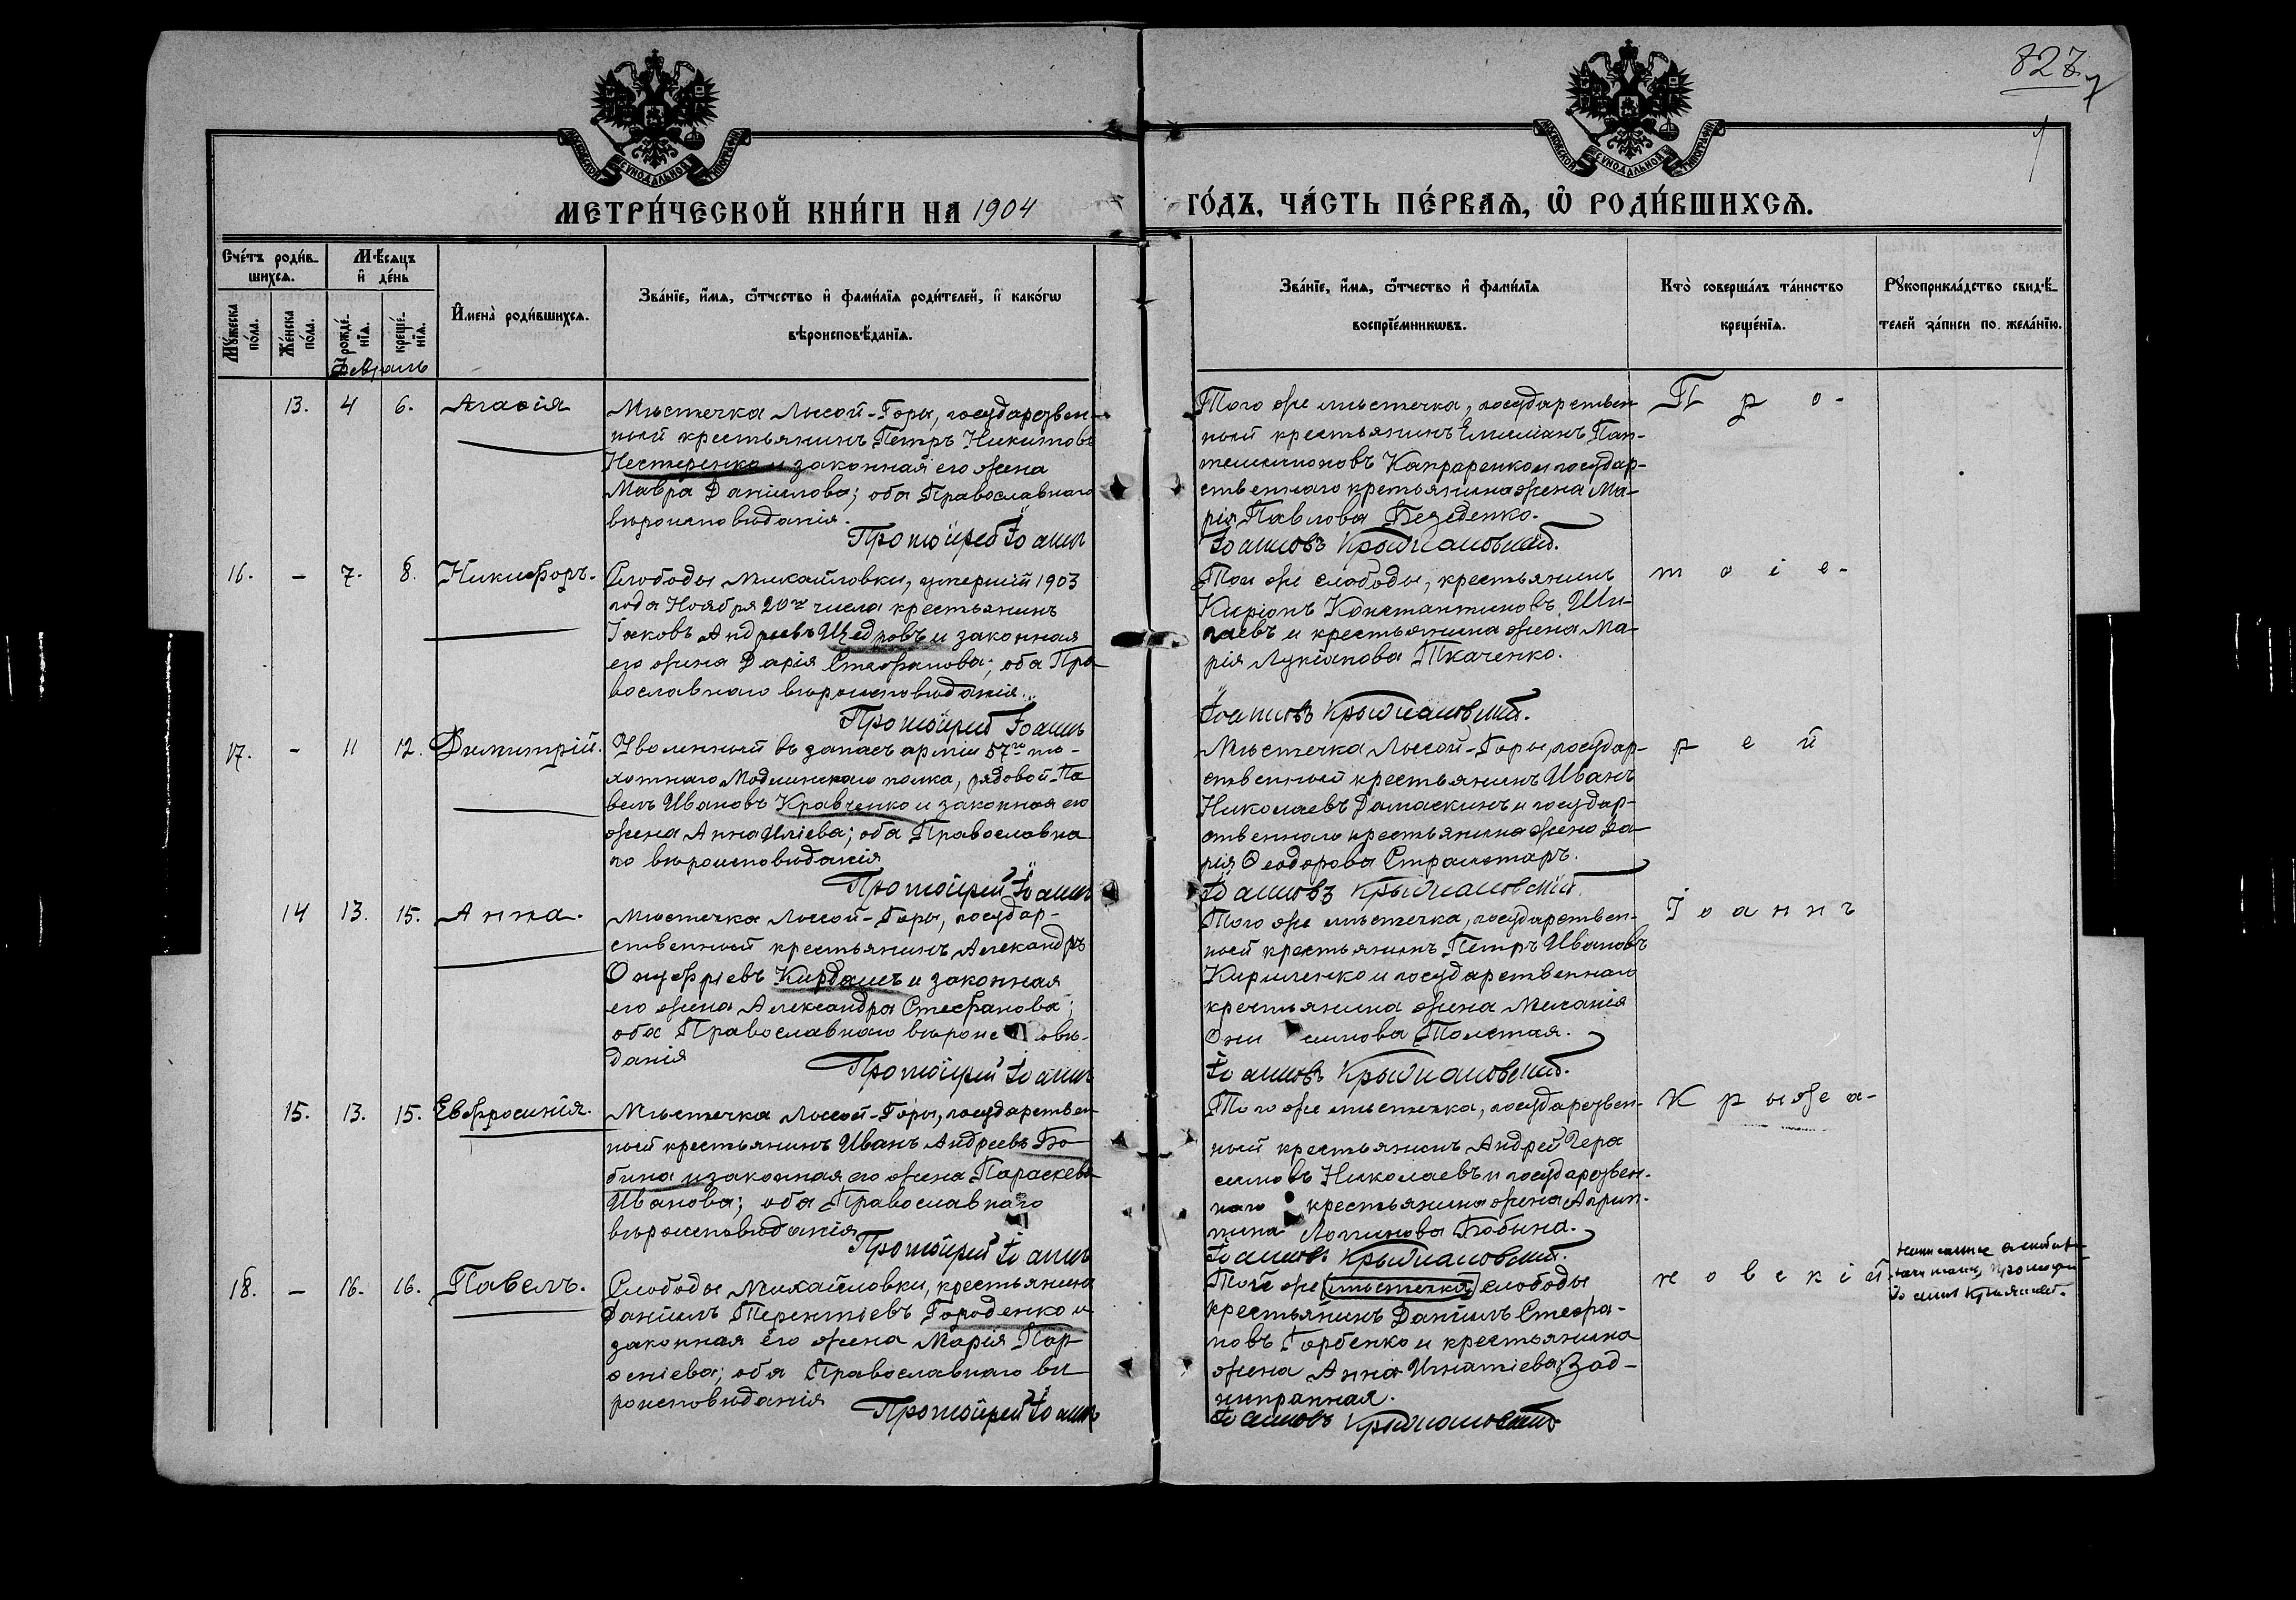 827
7
МОСКОВСКОЙ СѴНОДАЛЬНОЙ ТИПОГРАФІИ
МОСКОВСКОЙ СѴНОДАЛЬНОЙ ТИПОГРАФІИ
МЕТРИ́ЧЕСКОЙ КНИ́ГИ НА 1904
ГО́ДЪ, ЧА́СТЬ ПЕ́РВАѦ, Ѡ҆ РОДИ́ВШИХСѦ.
Сче́тъ роди́в-
шихсѧ.
Мꙋ́жеска по́ла.
Же́нска по́ла.
Мѣ́сѧцъ
и҆ де́нь
рожде́-
нїѧ.
креще́-
нїѧ.
Февраль
И҆мена̀ роди́вшихсѧ.
Зва́нїе, и҆́мѧ, ѻ҆́тчество и҆ фами́лїѧ роди́телей, и҆ како́гѡ
вѣроисповѣ́данїѧ.
Зва́нїе, и҆́мѧ, ѻ҆́тчество и҆ фами́лїѧ
воспрїе́мникѡвъ.
Кто̀ соверша́лъ та́инство
креще́нїѧ.
Рꙋкоприкла́дство свидѣ́-
телей за́писи по жела́нїю.
13. 4 6. Агаѳія
Мѣстечка Лысой-Горы, государствен-
ный крестьянинъ Петръ Никитовъ
Нестеренко и законная его жена
Мавра Даніилова; оба Православнаго
вѣроисповѣданія.
Протоіерей Іоаннъ
Того же мѣстечка, государствен-
ный крестьянинъ Емиліанъ Пан-
телеимоновъ Капраренко и государ-
ственнаго крестьянина жена Ма-
рія Павлова
Іоанновъ Крыжановскій.
П р о-
16. – 7. 8. Никифоръ.
Слободы Михайловки, умершій 1903
года Ноября 20го числа крестьянинъ
Іаковъ Андреевъ Щедровъ и законная
его жена Дарія Стефанова; оба Пра-
вославнаго вѣроисповѣданія.
Протоіерей Іоаннъ
Той же слободы, крестьянинъ
Киріонъ Константиновъ Ши-
гаевъ и крестьянина жена Ма-
рія Лукіанова Ткаченко.
Іоанновъ Крыжановскій.
т о і е-
17. – 11 12. Димитрій.
Уволенный въ запасъ арміи 57го пѣ-
хотнаго Модлинскаго полка, рядовой Па-
велъ Ивановъ Кравченко и законная его
жена Анна Иліева; оба Православна-
го вѣроисповѣданія
Протоіерей Іоаннъ
Мѣстечка Лысой-Горы, государ-
ственный крестьянинъ Иванъ
Николаевъ Дамаскинъ и государ-
ственнаго крестьянина жена Да-
рія Ѳеодорова
Іоанновъ Крыжановскій.
р е й
14 13. 15. Анна.
Мѣстечка Лысой-Горы, государ-
ственный крестьянинъ Александръ
Онуфріевъ Кирдашъ и законная
его жена Александра Стефанова;
оба Православнаго вѣроис овѣ-
данія
Протоіерей Іоаннъ
Того же мѣстечка, государствен-
ный крестьянинъ Петръ Ивановъ
Кириленко и государственнаго
крестьянина жена Меланія
Они симова Толстая.
Іоанновъ Крыжановскій.
І о а н н ъ
15. 13. 15. Евфросинія.
Мѣстечка Лысой-Горы, государствен-
ный крестьянинъ Иванъ Андреевъ Бо-
бина и законная его жена Параскева
Иванова; оба Православнаго
вѣроисповѣданія
Протоіерей Іоаннъ
Того же мѣстечка, государствен-
ный крестьянинъ Андрей Гера
симовъ Николаевъ и государствен-
наго крестьянина жена Агрип-
пина Логинова Бобина.
Іоанновъ Крыжановскій.
К р ы ж а-
18. – 16. 16. Павелъ.
Слободы Михайловки, крестьянинъ
Даніилъ Терентіевъ Городенко и
законная его жена Марія Пар-
ѳеніева; оба Православнаго вѣ
роисповѣданія
Протоіерей Іоаннъ
Той же (мѣстечка) слободы
крестьянинъ Даніилъ Стефа-
новъ Горбенко и крестьянина
жена Анна Игнатіева Зад-
нипранная.
Іоанновъ Крыжановскій
н о в с к і й